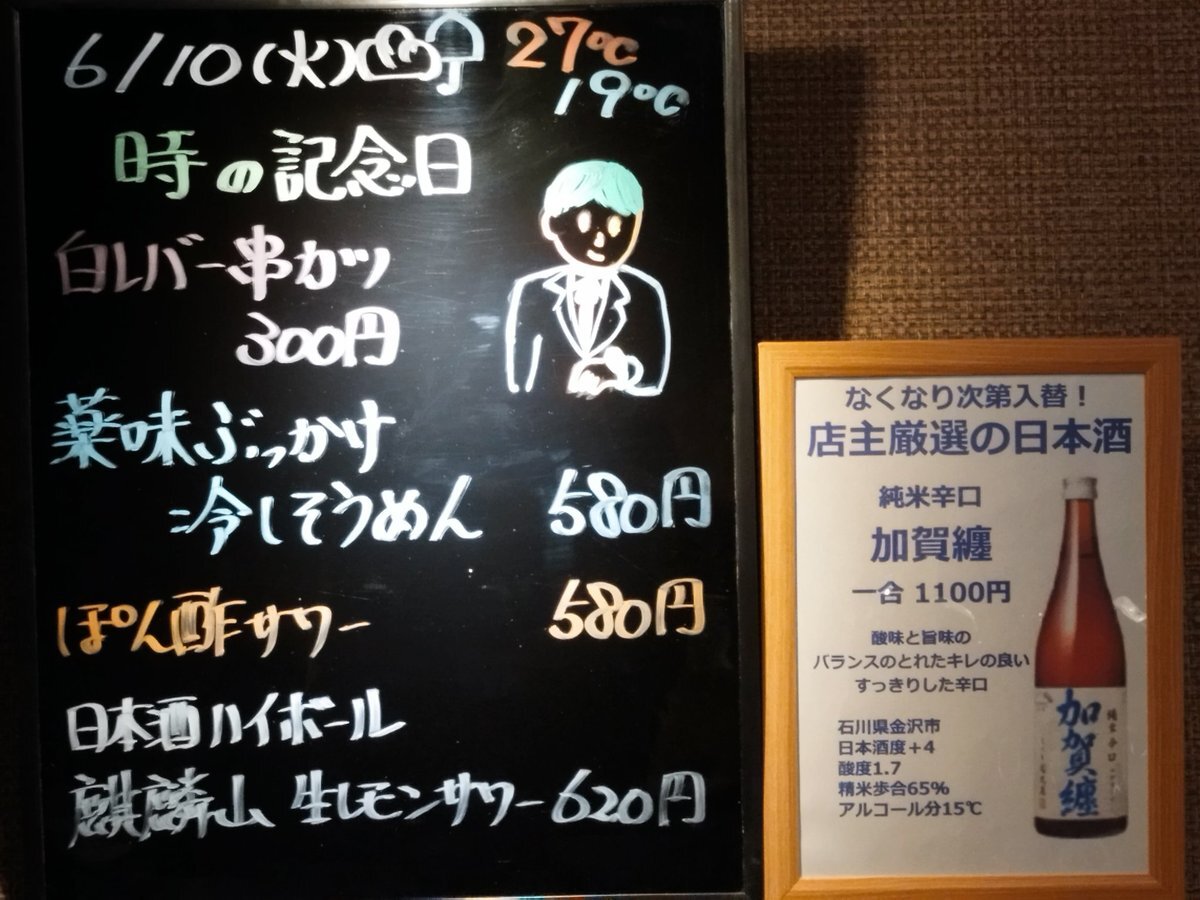 6/10(火)
27℃
19℃
時の記念日
白レバー串カツ
300円
薬味ぶっかけ
冷しそうめん 580円
ぽん酢サワー 580円
日本酒ハイボール
麒麟山 生レモンサワー 620円
なくなり次第入替！
店主厳選の日本酒
純米辛口
加賀纏
一合 1100円
酸味と旨味の
バランスのとれたキレの良い
すっきりした辛口
石川県金沢市
日本酒度＋4
酸度1.7
精米歩合65%
アルコール分15℃
加賀纏
純米辛口